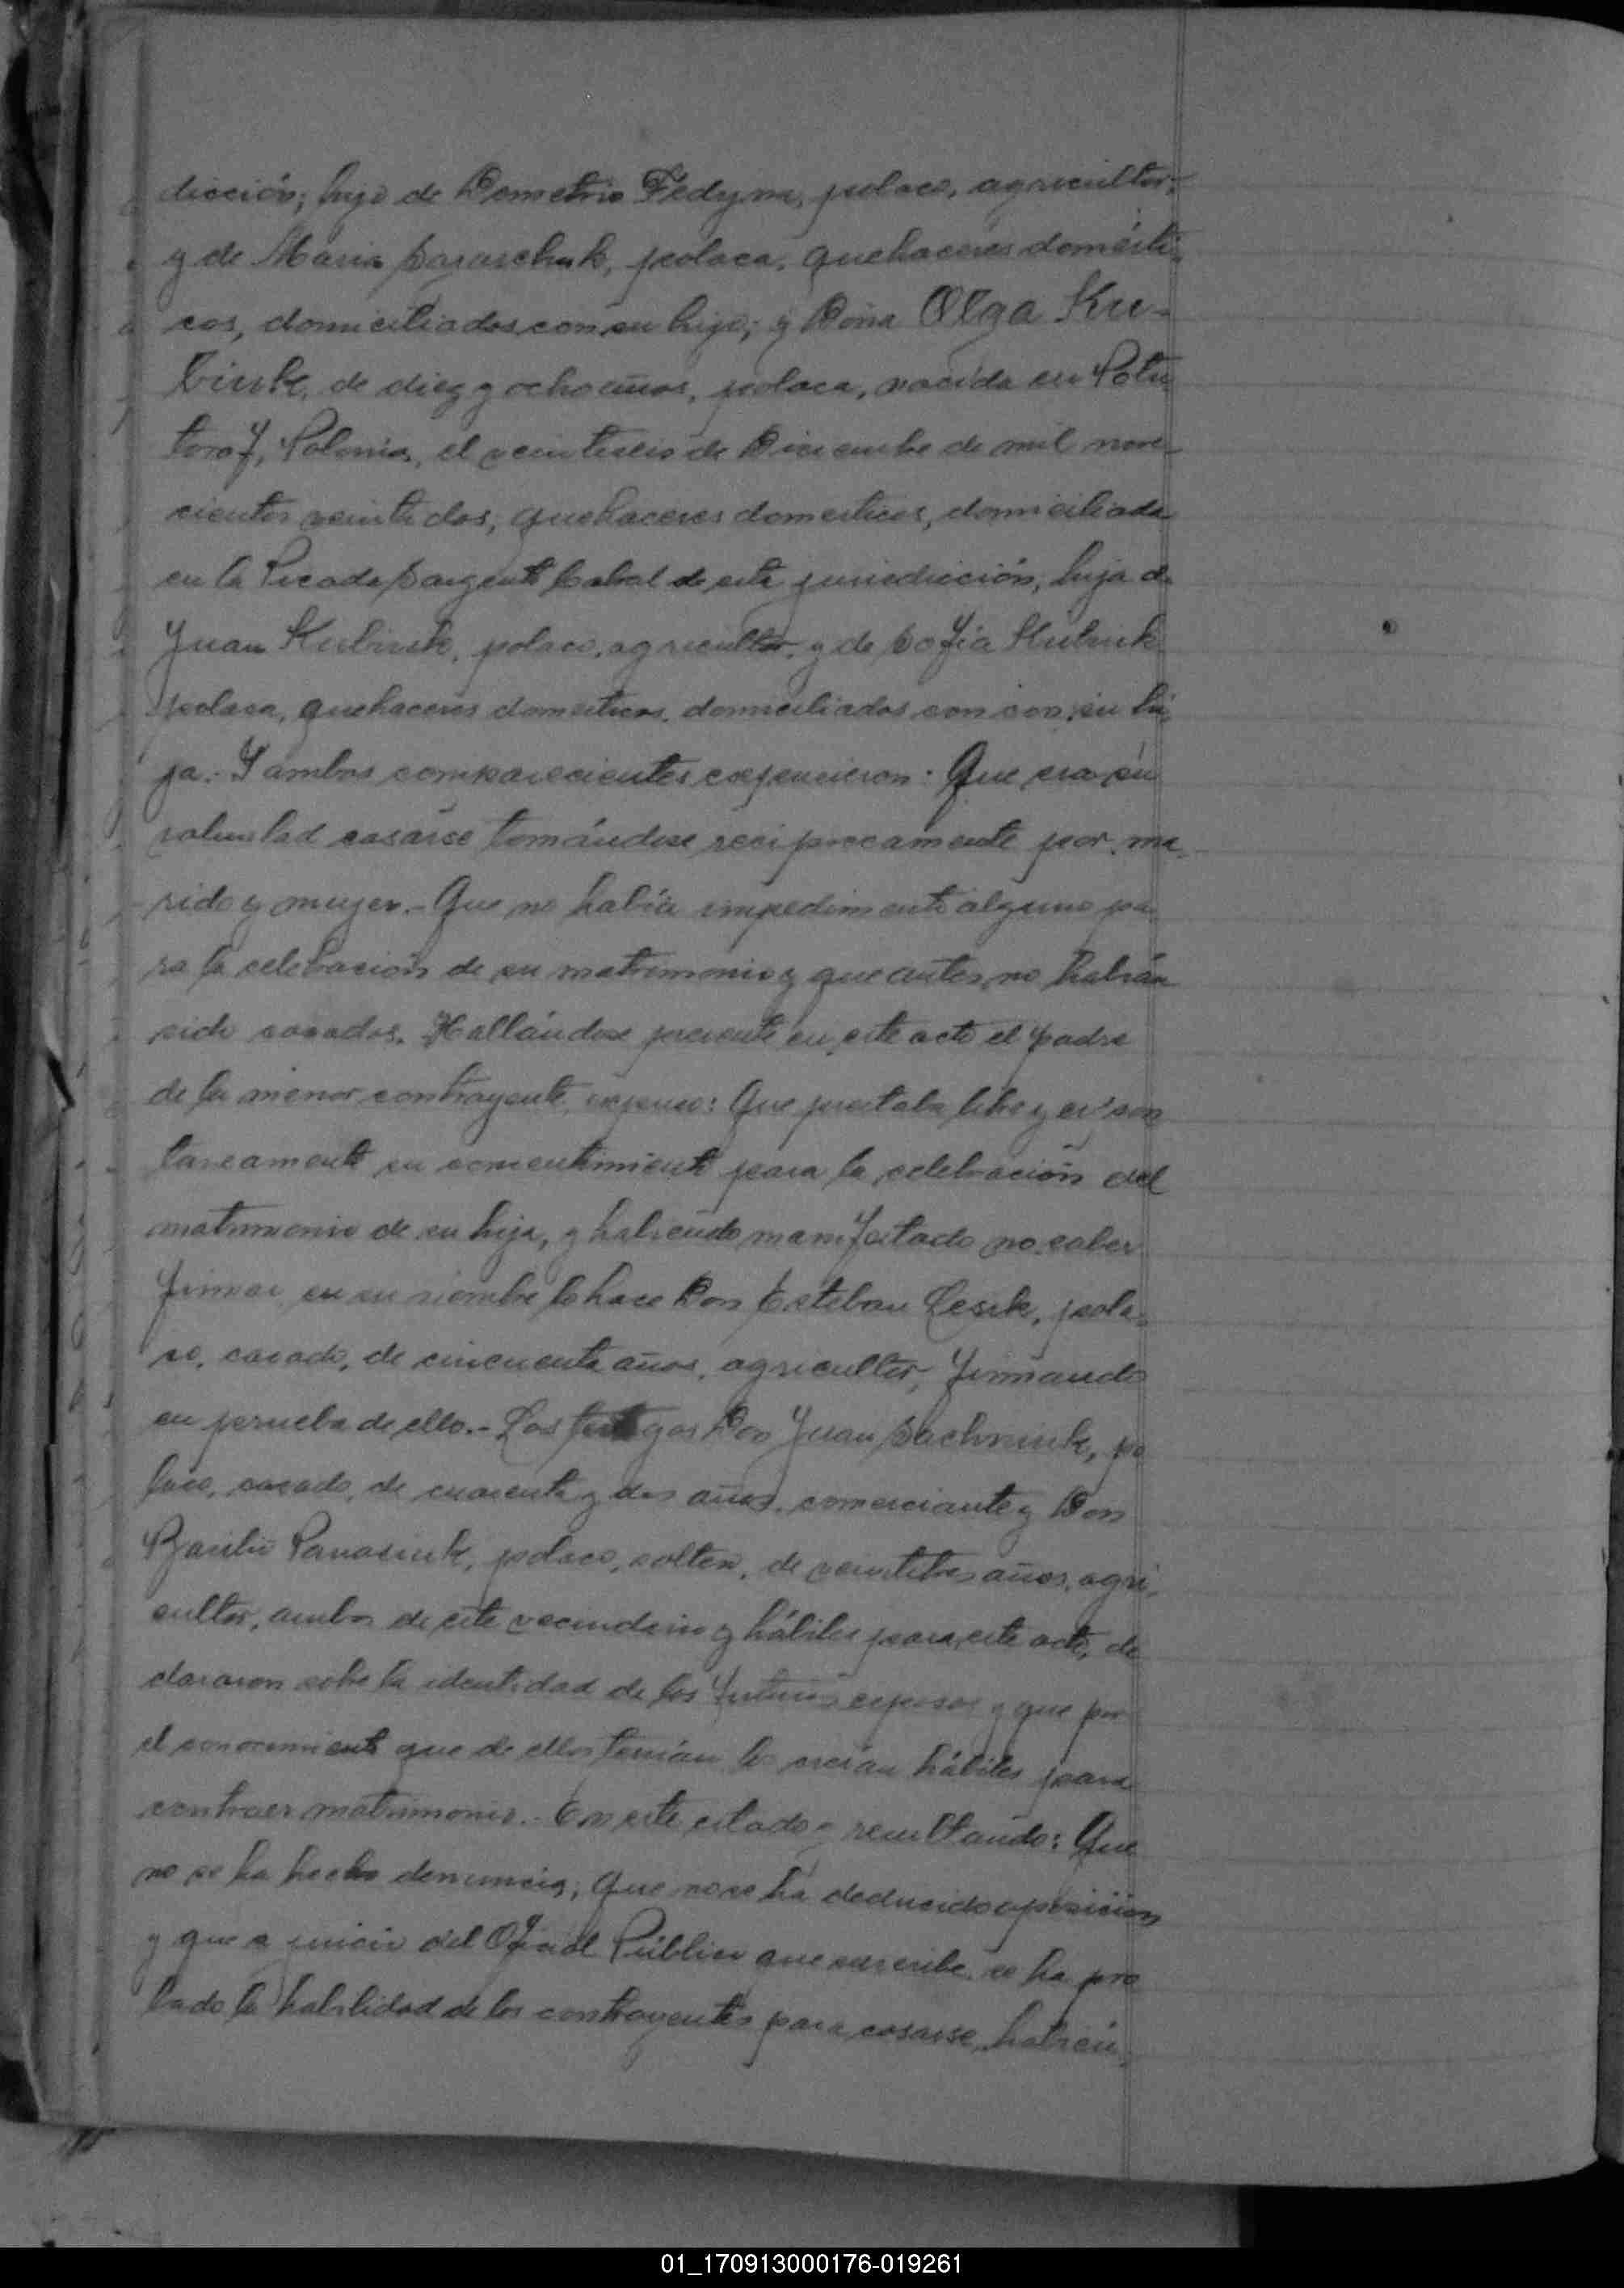 dicción; hijo de Demetrio Fedyna, polaco, agricultor;
y de Maria Saraschuk, polaca, quehaceres domésti-
cos, domiciliados con su hijo; y Doña Olga Ku-
biuk, de diez y ocho años, polaca, nacida en Potu
torof, Polonia, el veintiseis de Diciembre de mil nove-
cientos veintidos; quehaceres domesticos, domiciliada
en la Picada Sargento Cabral de esta jurisdicción, hija de
Juan Kubiuk, polaco, agricultor, y de Sofia Kubiuk
polaca, quehaceres domesticos, domiciliados con con su hi-
ja.- Y ambos comparecientes expusieron: Que era su
voluntad casarse tomándose reciprocamente por ma-
rido y mujer.- Que no había impedimento alguno pa-
ra la celebración de su matrimonio y que antes no habían
sido casados. Hallándose presente en este acto el padre
de la menor contrayente, expuso: Que prestaba libre y espon
taneamente su consentimiento para la celebración del
matrimonio de su hija, y habiendo manifestado no saber
firmar en su nombre lo hace Don Esteban Lesik, pola-
co, casado, de cincuenta años, agricultor, firmando
en prueba de ello.- Los testigos Don Juan Sachniuk, po
laco, casado, de cuarenta y dos años, comerciante y Don
Basilio Panasiuk, polaco, soltero, de veintitres años, agri-
cultor, ambos de este vecindario y hábiles para este acto, de
clararon sobre la identidad de los futuros esposos y que por
el conocimiento que de ellos tenían los creían hábiles para
contraer matrimonio.- En este estado y resultando: Que
no se ha hecho denuncia; Que no se ha deducido oposición
y que a juicio del Oficial Público que suscribe, se ha pro
bado la habilidad de los contrayentes para casarse, habien-
01_170913000176-019261